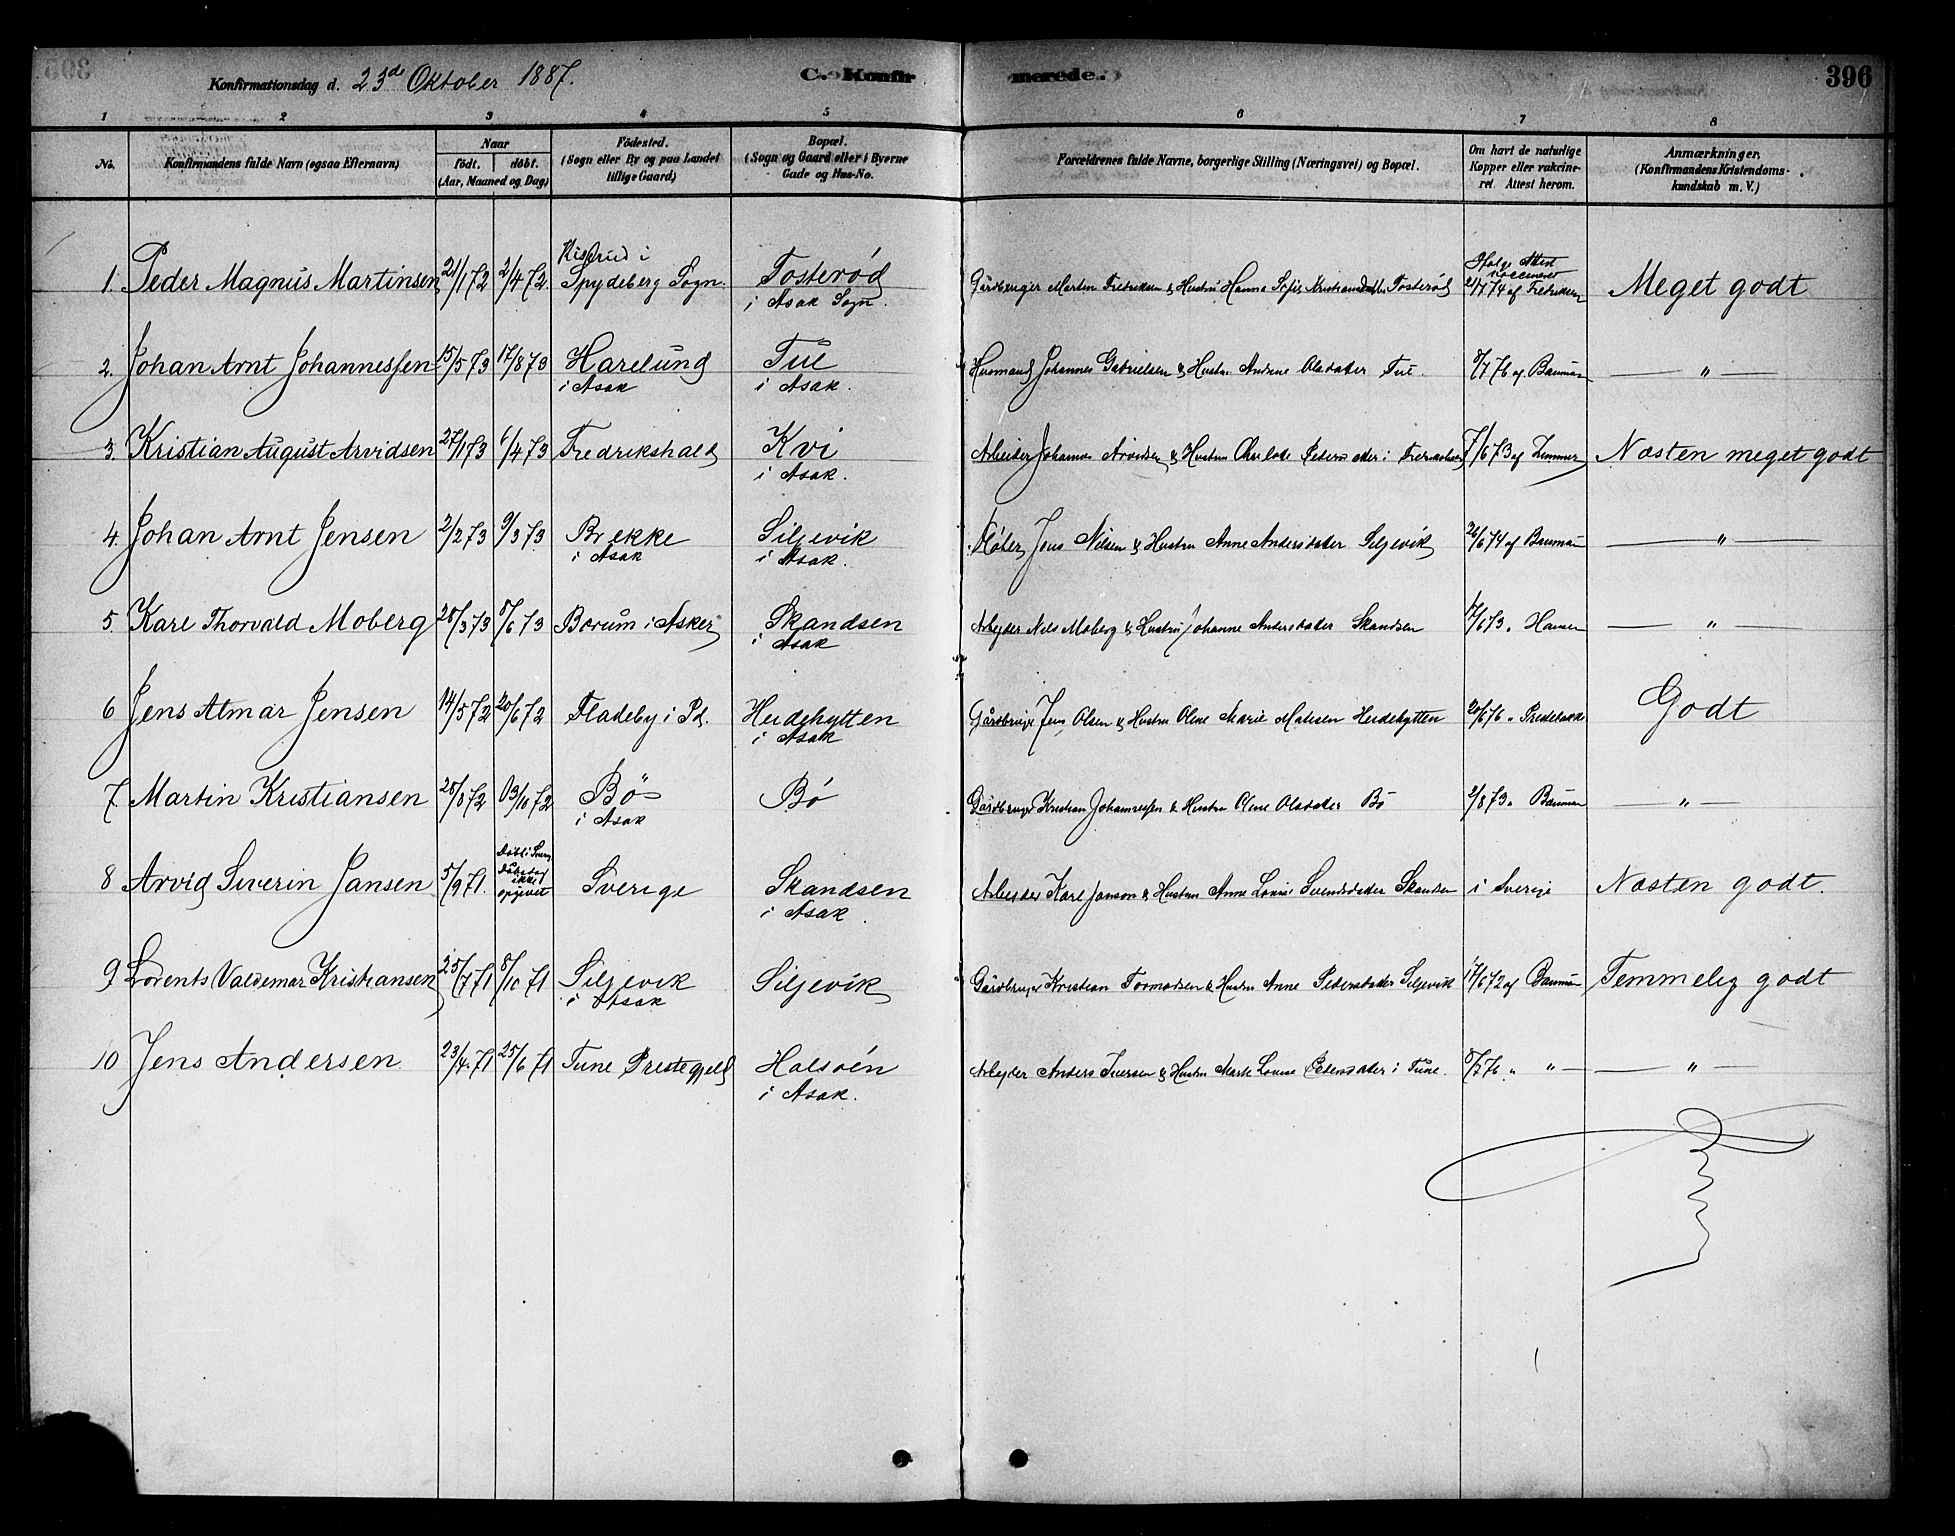 Konfirmationsdag d. 23de Oktober 1887.
C. Konfirmerede.
396
1 2 3 4 5 6 7 8
No. Konfirmandens fulde Navn (ogsaa Efternavn) Naar født. døbt. (Aar, Maaned og Dag) Fødested. (Sogn eller By og paa Landet tillige Gaard) Bopæl. (Sogn og Gaard eller i Byerne Gade og Hus-No. Forældrenes fulde Navne, borgerlige Stilling (Næringsvei) og Bopæl. Om havt de naturlige Kopper eller vakcineret. Attest herom. Anmærkninger. (Konfirmandens Kristendomskundskab m. V.)
1. Peder Magnus Martinsen 21/1 72 2/4 72. i Spydeberg Sogn. Fosterød i Asak Sogn. Gårdbruger Martin Fredriksen & Hustru Hanna Sofie Kristiansdatter Fosterød Ifølge Attest vaccineret 2/7 74 af Fredriksen Meget godt
2. Johan Arnt Johannessen 15/5 73 17/8 73 Harelund i Asak Tue i Asak. Husmand Johannes Gabrielsen & Hustru Andrine Olsdatter Tue. 8/7 76 af Bauman — " —
3. Kristian August Arvidsen 27/1 73 6/4 73 Fredrikshald Kvi i Asak. Arbeider Johannes Arvidsen & Hustru Charlotte Pedersdatter i Fredrikshald 7/6 73 af Zimmer Næsten meget godt
4. Johan Arnt Jensen 2/2 73 9/3 73 Brekke i Asak Siljevik i Asak. Fløter Jens Nilsen & Hustru Anne Andersdatter Siljevik 26/6 74 af Bauman — " —
5. Karl Thorvald Moberg 28/3 73 8/6 73 Borum i Asker Skandsen i Asak Arbejder Nils Moberg & Hustru Johanne Andersdatter Skandsen 17/6 73 " Hansen — " —
6 Jens Almar Jensen 14/5 72 20/6 72 Fladeby i Id. Heidehytten i Asak Gårdbruger Jens Olsen & Hustru Olene Marie Matisen Heidehytten 20/6 76 " Godt
7 Martin Kristiansen 28/8 72 13/10 72 Bø i Asak Bø Gårdbruger Kristian Johannessen & Hustru Olene Olsdatter Bø 2/8 73 " Bauman — " —
8 Arvid Siverin Jansen 5/9 71. Døbt i Sverig Dåbsdag ikke opgivet Sverige Skandsen i Asak Arbejder Karl Janson & Hustru Anne Lovise Svendsdatter Skandsen i Sverige Næsten godt.
9 Lorents Valdemar Kristiansen 25/7 71 8/10 71 Siljevik i Asak Siljevik Gårdbruger Kristian Tormodsen & Hustru Anne Pedersdatter Siljevik 17/6 72 af Bauman Temmelig godt
10 Jens Andersen 23/4 71 25/6 71 Tune Prestegjeld Holsøen i Asak. Arbejder Anders Iversen & Hustru Marte Lovise Pedersdatter i Tune. 8/7 76 " " — — " —